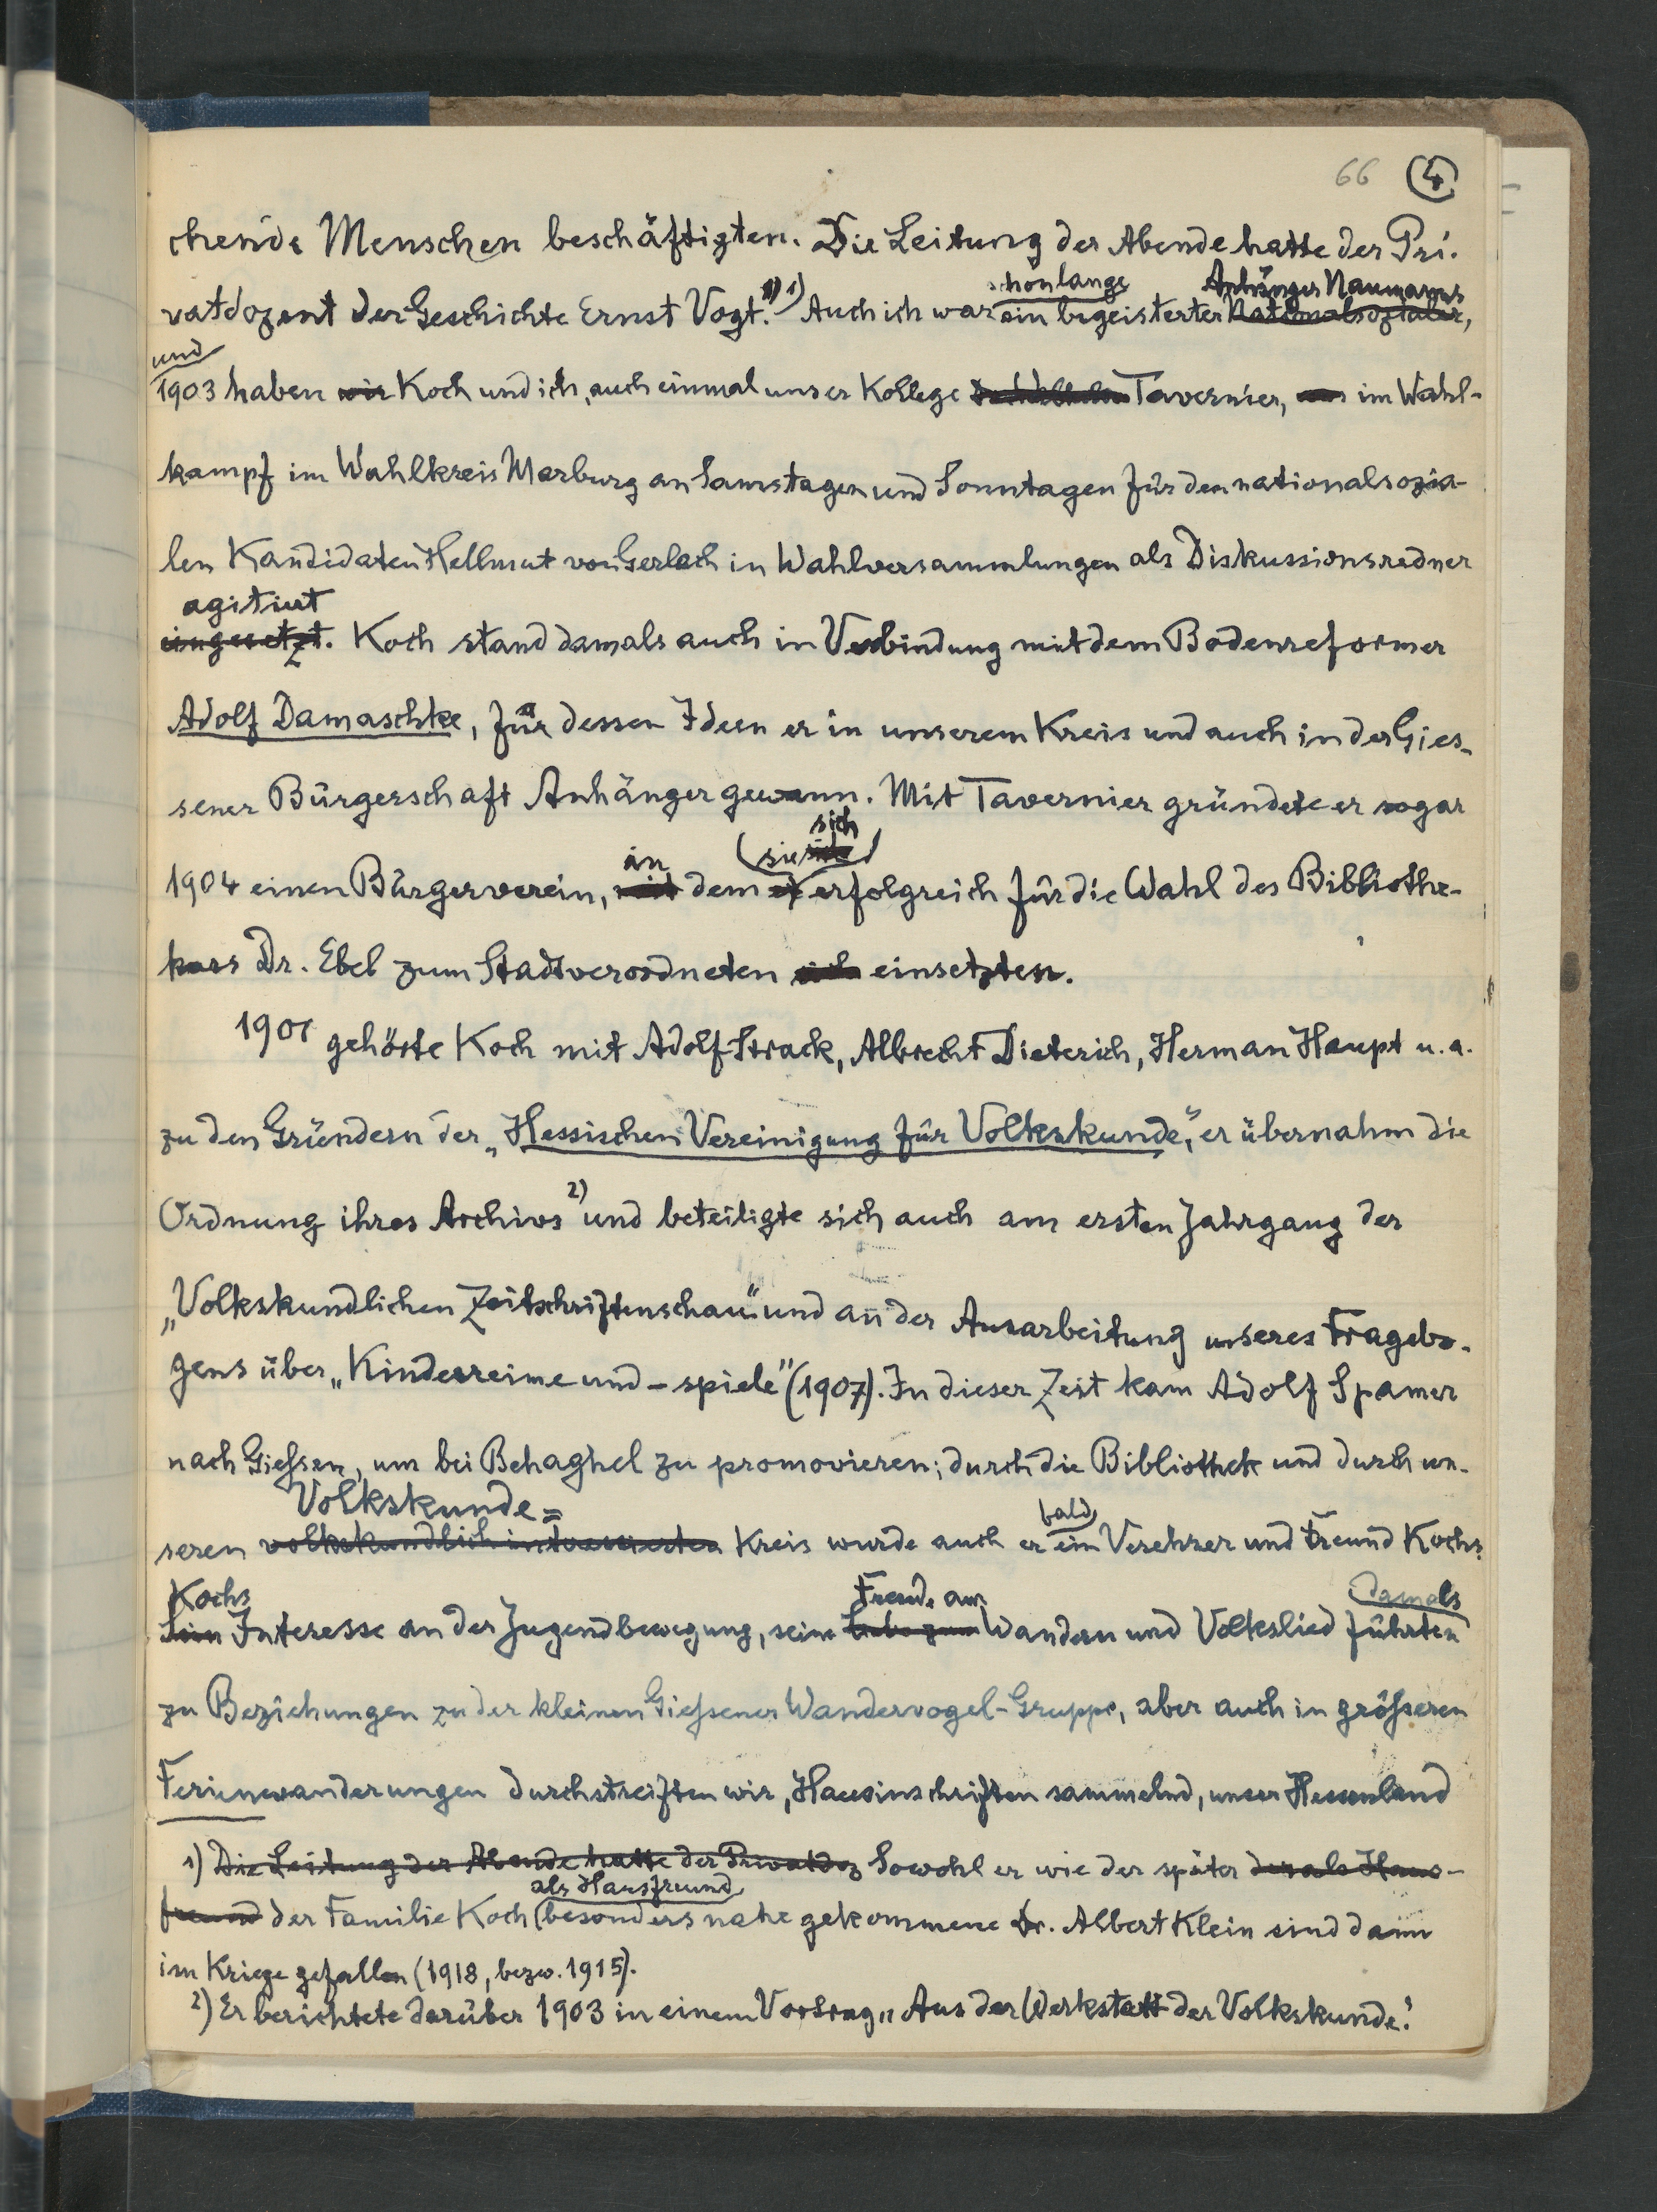 66 (4)
chende Menschen beschäftigten. Die Leitung der Abende hatte der Pri-
schon lange Anhänger Naumanns
vatdozent der Geschichte Ernst Vogt.1) Auch ich war ein begeisterter Nationalsozialer,
und
1903 haben wir Koch und ich, auch einmal unser Kollege Tavernier, im Wahl-
kampf im Wahlkreis Marburg an Samstagen und Sonntagen für den nationalsozia-
len Kandidaten Hellmut von Gerlach in Wahlversammlungen als Diskussionsredner
agitiert
eingesetzt. Koch stand damals auch in Verbindung mit dem Bodenreformer
Adolf Damaschke, für dessen Ideen er in unserem Kreis und auch in der Gies-
sener Bürgerschaft Anhänger gewann. Mit Tavernier gründete er sogar
in (sie sich)
1904 einen Bürgerverein, mit dem er erfolgreich für die Wahl des Bibliothe-
kars Dr. Ebel zum Stadtverordneten sich einsetzten.
1901 gehörte Koch mit Adolf Strack, Albrecht Dieterich, Herman Haupt u. a.
zu den Gründern der „Hessischen Vereinigung für Volkskunde", er übernahm die
Ordnung ihres Archivs2) und beteiligte sich auch am ersten Jahrgang der
„Volkskundlichen Zeitschriftenschau" und an der Ausarbeitung unseres Fragebo-
gens über „Kinderreime und -spiele" (1907). In dieser Zeit kam Adolf Spamer
nach Gießen, um bei Behaghel zu promovieren; durch die Bibliothek und durch un-
Volkskunde= bald
seren volkskundlich interessierten Kreis wurde auch er ein Verehrer und Freund Kochs.
Kochs Freude am damals
Sein Interesse an der Jugendbewegung, seine Liebe zum Wandern und Volkslied führten
zu Beziehungen zu der kleinen Gießener Wandervogel-Gruppe, aber auch in größeren
Ferienwanderungen durchstreiften wir, Hausinschriften sammelnd, unser Hessenland
1) Die Leitung der Abende hatte der Privatdoz Sowohl er wie der später der als Haus-
als Hausfreund
freund der Familie Koch besonders nahe gekommene Dr. Albert Klein sind dann
im Kriege gefallen (1918, bezw. 1915).
2) Er berichtete darüber 1903 in einem Vortrag „Aus der Werkstatt der Volkskunde."